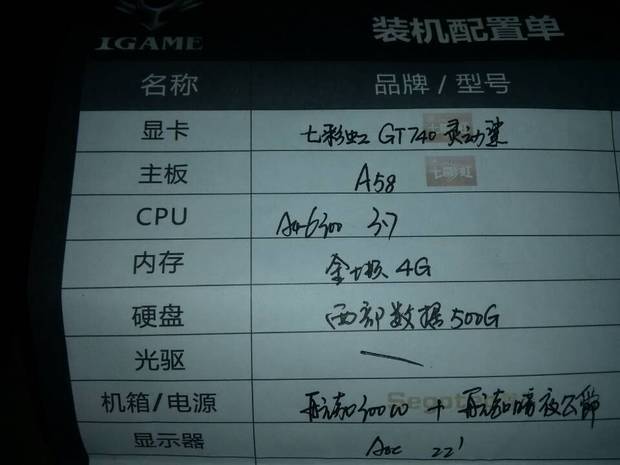 IGAME 装机配置单
名称 品牌/型号
显卡 七彩虹 GT740 灵动鲨
主板 A58 七彩虹
CPU 3.7
内存 金士顿 4G
硬盘 西部数据 500G
光驱 —
机箱/电源 航嘉300W + 航嘉暗夜公爵 Segotep
显示器 Aoc 22'